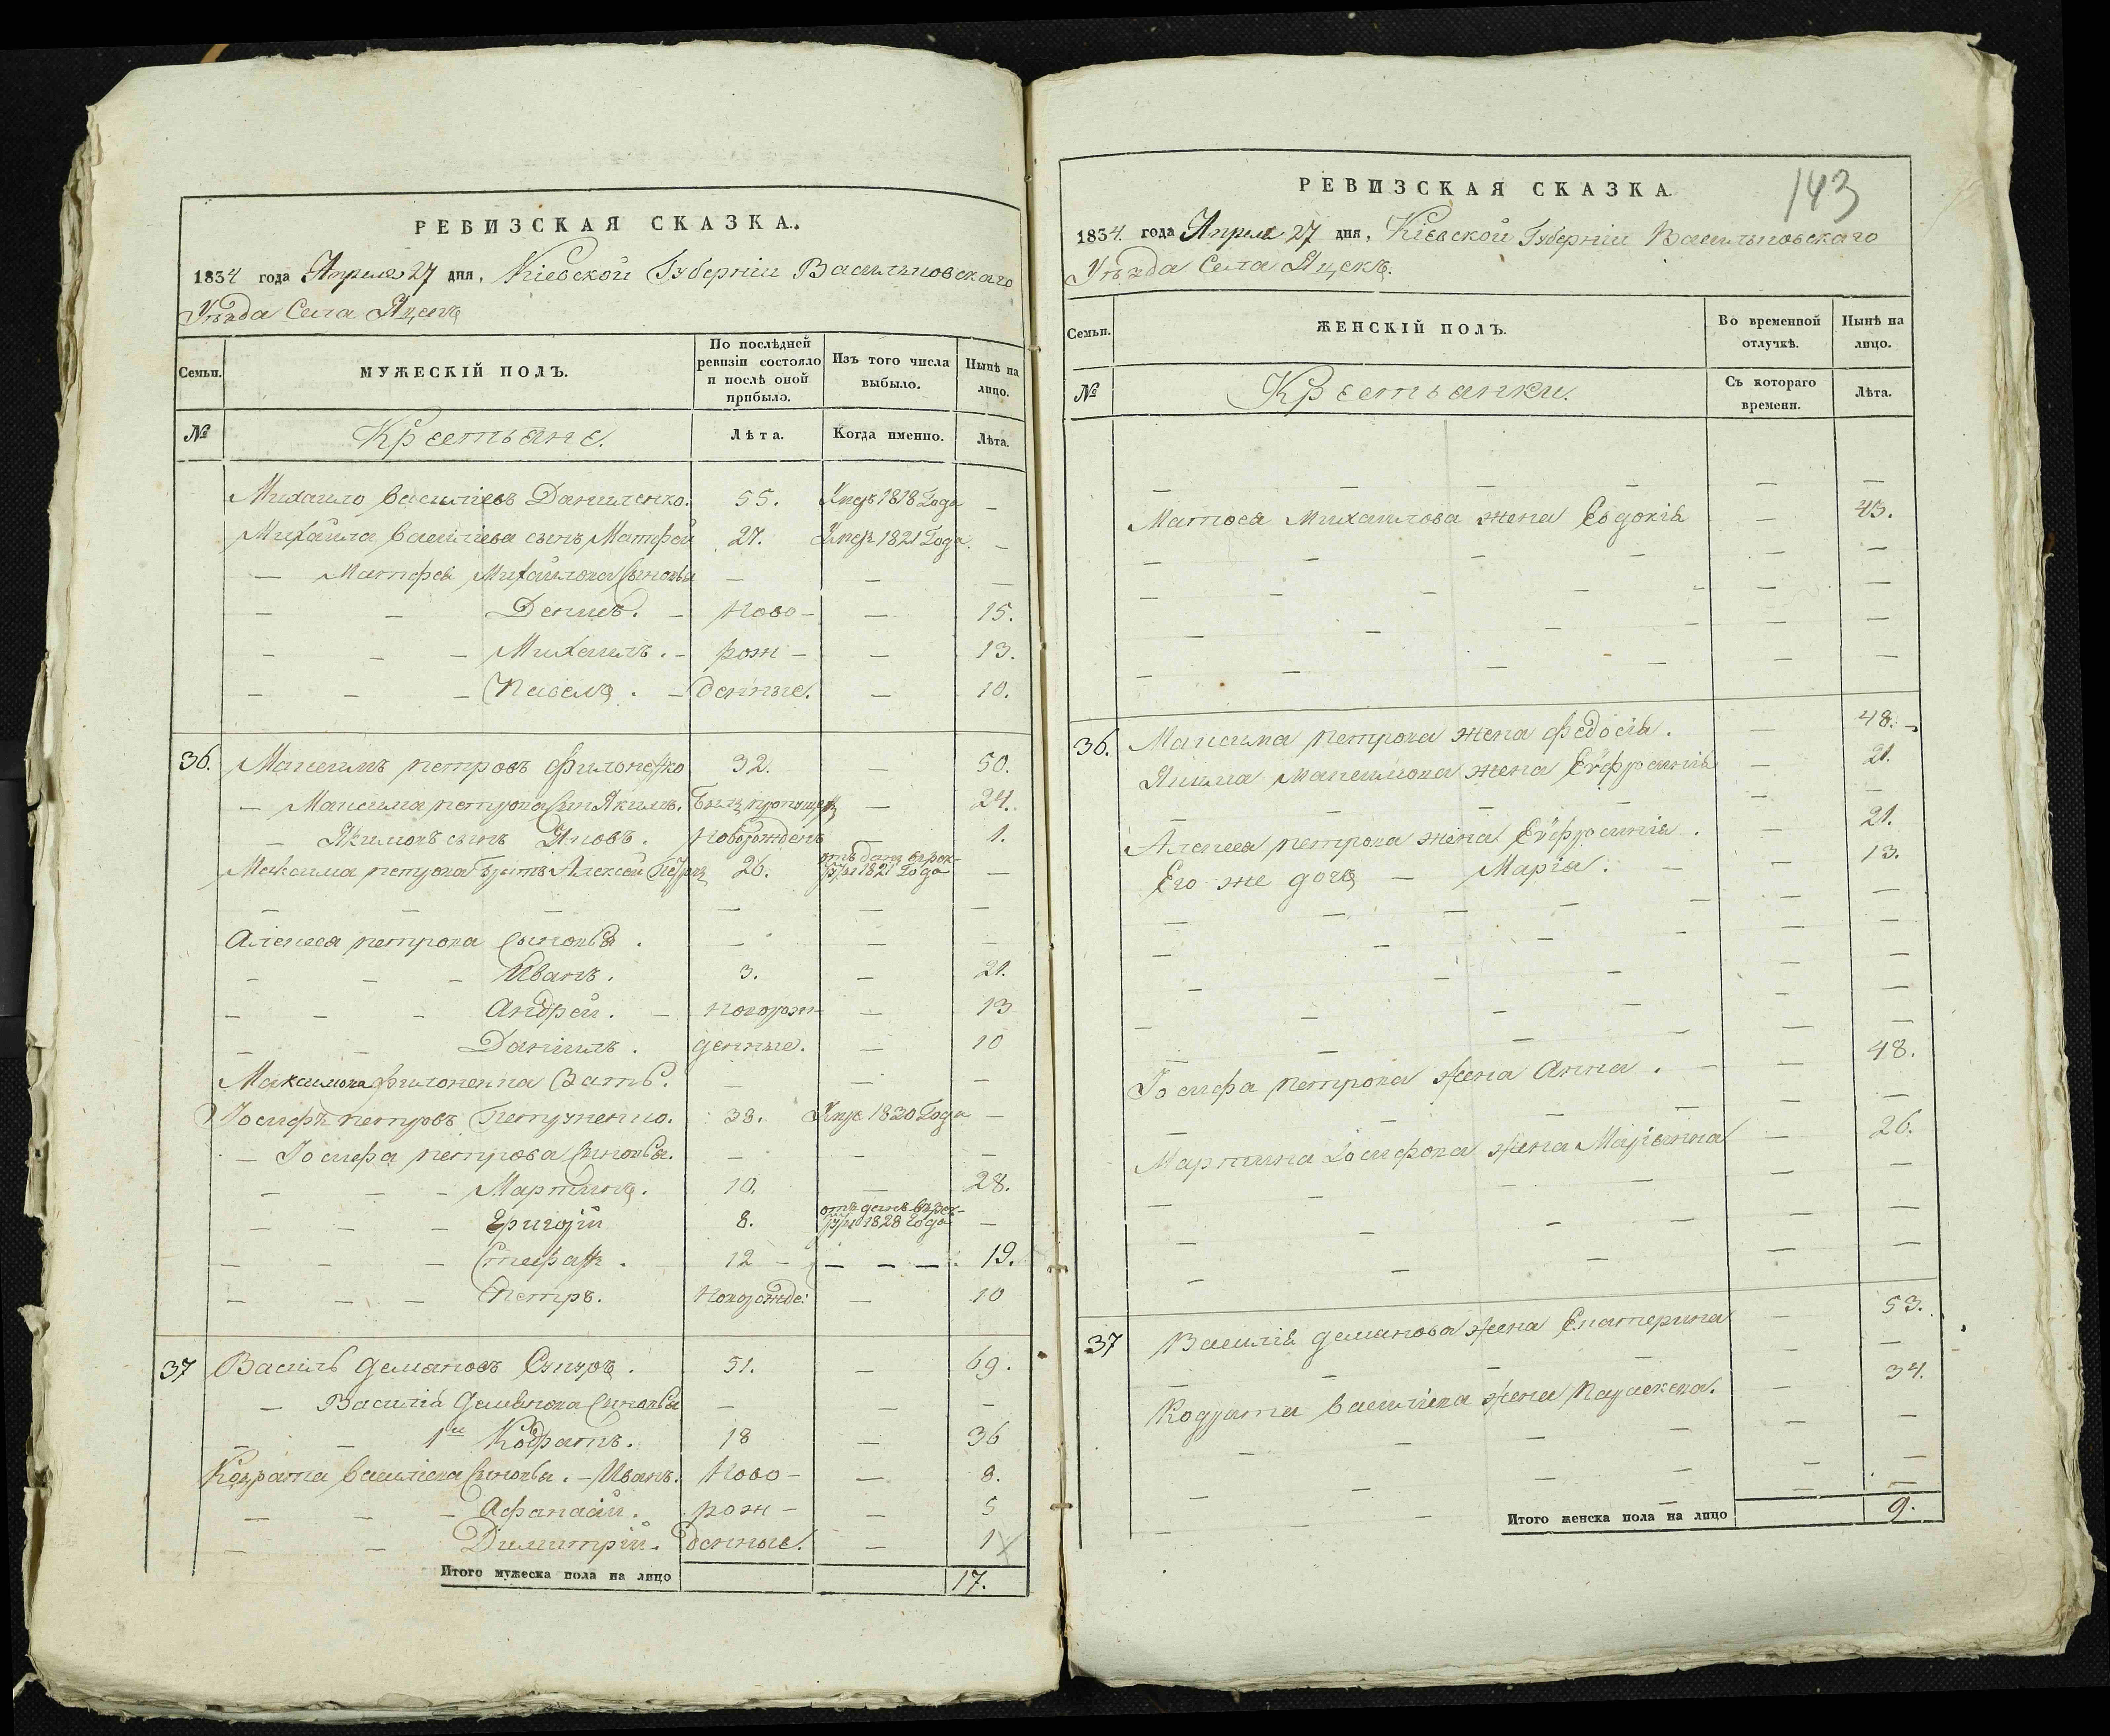 РЕВИЗСКАЯ СКАЗКА.
1834 года Апреля 27 дня, Кіевской Губерніи Васильковскаго
Уѣзда Села
Семьи.
МУЖЕСКІЙ ПОЛЪ.
По послѣдней ревизіи состояло и послѣ оной прибыло.
Изъ того числа выбыло.
Нынѣ на лицо.
№
Крестьяне.
Лѣта.
Когда именно.
Лѣта.
Михайло Василіевъ Даниленко. 55. Умеръ 1818 Года —
Михайла Василіева сынъ Матфей 27. Умеръ 1821 Года. —
— Матфея Михайлова Сыновья — — —
— — Денисъ. — Ново- — 15.
— — — Михаилъ. — рож- — 13.
— — — Павелъ. — денные. — 10.
36. Максимъ петровъ Филоненко 32. — 50.
— Максима петрова Сынъ Якимъ. Былъ пропущенъ — 24.
— Якимовъ сынъ Яковъ. Новорожденъ 1.
Максима петрова Братъ Алексей 26. отъданъ врек-
руты 1821 Года —
— — — — — —
Алексея петрова Сыновья. — — —
— — — Иванъ. 3. — 21.
— — — Андрей. — Новорож- — 13
— — Даніилъ. денные. — 10
Максима Филоненка Зять. — — —
Іосифъ петровъ Петренко. 33. Умре 1830 Года —
— Іосифа петрова Сыновья. — — —
— — — Мартинъ. 10. — 28.
— — — Григорій 8. отъданъ врек-
руты 1828 Года —
— — — Стефанъ. 12 — — — — 19.
— — — Петръ. Новорожде: — 10
37 Василь Демяновъ 51. — 69.
— Василія Демянова Сыновья — — —
— — 1й Кодратъ. 18 — 36
Кодрата Василіева Сыновья. — Иванъ. Ново- — 8.
— — — Афанасій. рож- — 5
— — Димитрій. денные. — 1
Итого мужеска пола на лицо 17.
143
РЕВИЗСКАЯ СКАЗКА
1834. года Апреля 27 дня, Кіевской Губерніи Васильковскаго
Уѣзда Села
Семьи.
ЖЕНСКІЙ ПОЛЪ.
Во временной отлучкѣ.
Нынѣ на лицо.
№
Крестьянки.
Съ котораго времени.
Лѣта.
— — — — — —
Матфея Михаилова жена Евдокія — 43.
— — — — — —
— — — — — — —
— — — — — —
— — — — —
36. Максима петрова жена Федосія. — 48.
Якима Максимова жена Еуфросинія — 21.
— — — — — —
Алексея петрова жена Еуфросинія. — 21.
Его же дочь — Марія. — — 13.
Іосифа петрова жена Анна. — — 48.
— — — — —
Мартина Іосифова жена Маріанна — 26.
37 Василія Демянова жена Екатерина — 53.
— — — — —
Кодрата Василіева жена Параскева. — 34.
Итого женска пола на лицо 9.